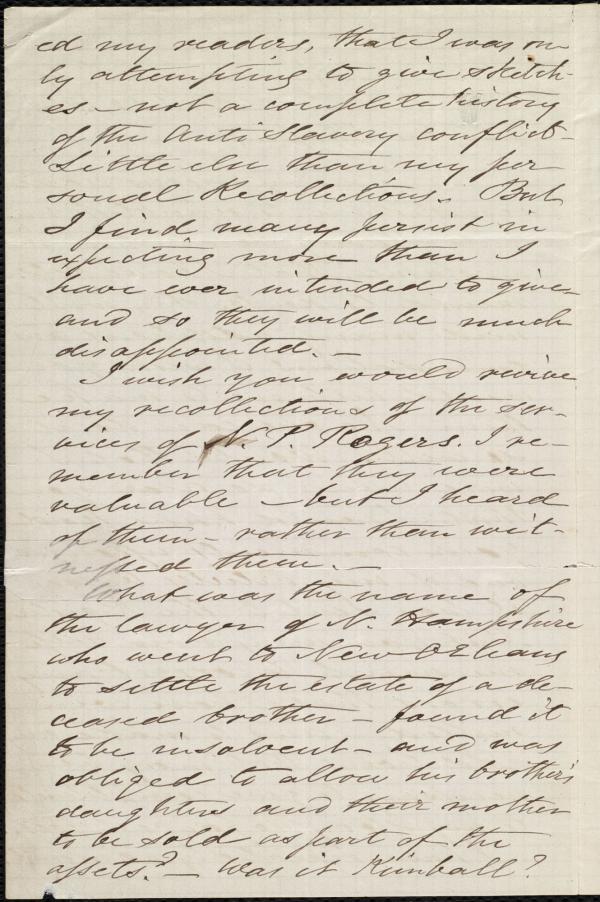 ed my readers, that I was on-
ly attempting to give sketch-
es – not a complete history
of the Anti Slavery conflict –
Little else than my per
sonal Recollections. But
I find many persist in
expecting more than I
have ever intended to give –
and so they will be much
disappointed. –
I wish you would revive
my recollections of the ser-
vices of N. P. Rogers. I re-
member that they were
valuable – but I heard
of them – rather than wit-
nessed them. –
What was the name of
the lawyer of N. Hampshire
who went to New Orleans
to settle the estate of a de-
ceased brother – found it
to be insolvent – and was
obliged to allow his brother's
daughters and their mother
to be sold as part of the
assets? – Was it Kimball?